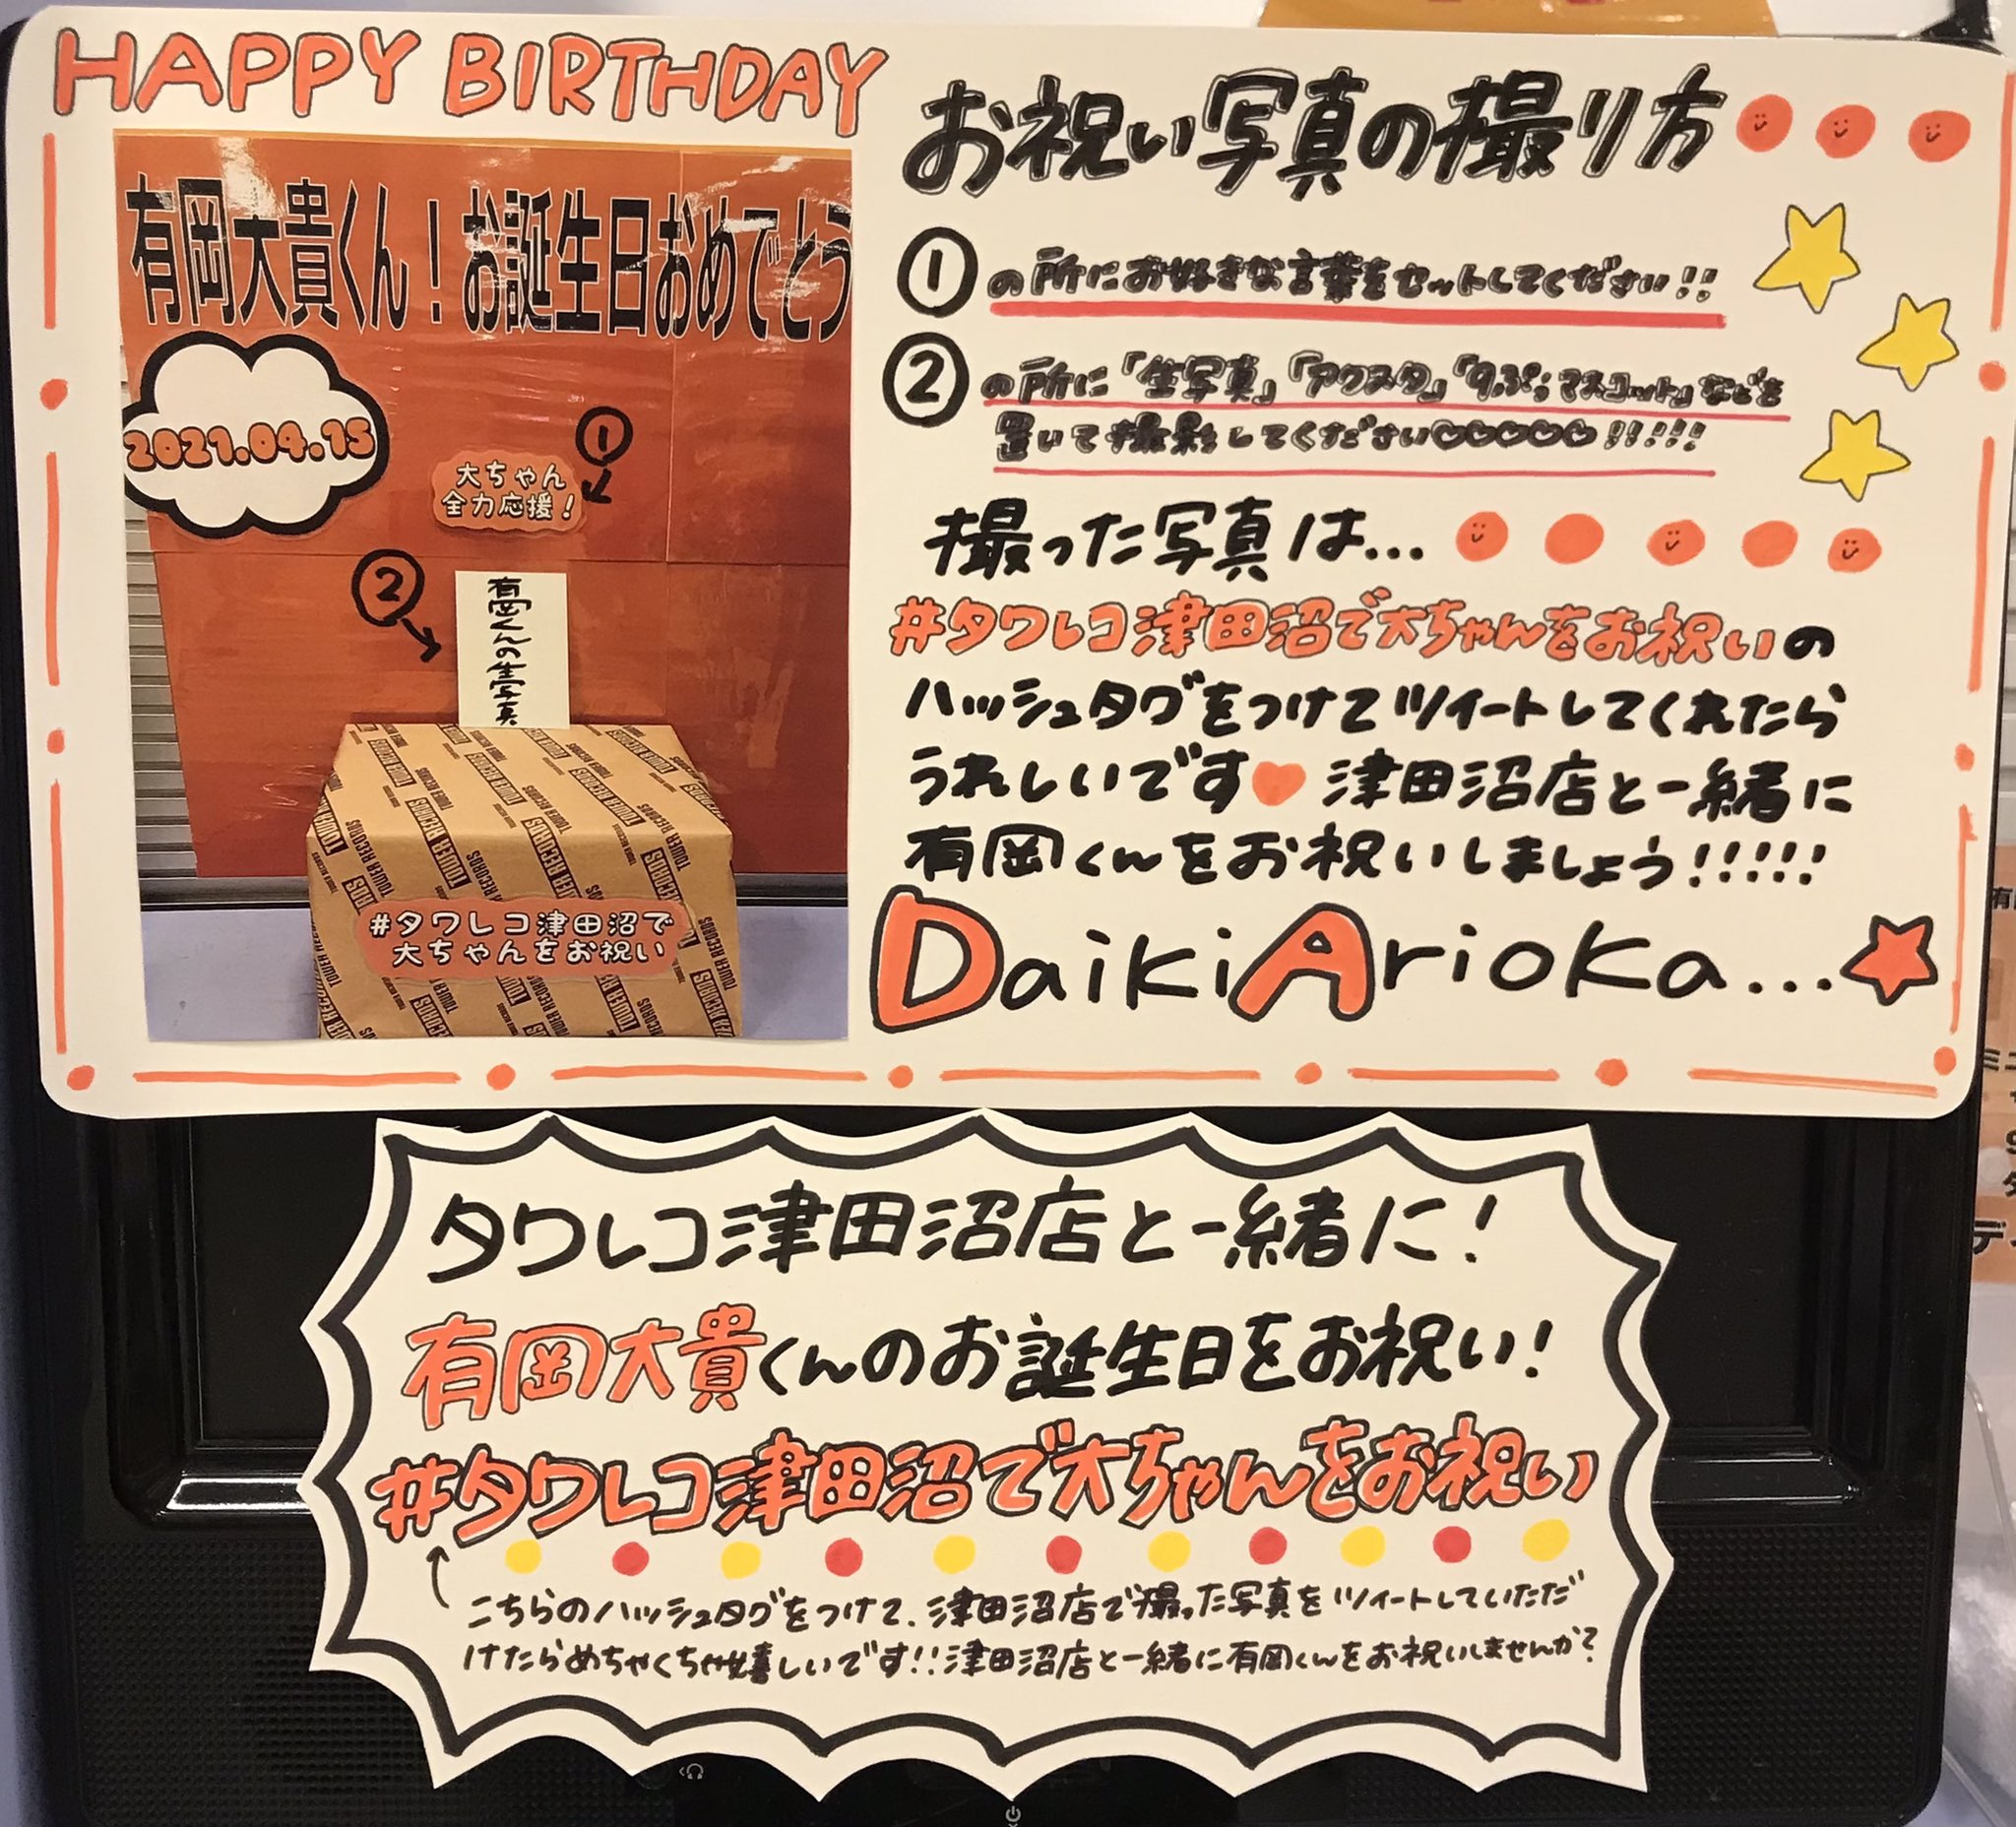 HAPPY BIRTHDAY
有岡大貴くん！お誕生日おめでとう
2021.04.15
①
大ちゃん
全力応援！
②
有岡くんの生写真
TOWER RECORDS
#タワレコ津田沼で
大ちゃんをお祝い
お祝い写真の撮り方
①の所にお好きな言葉をセットしてください!!
②の所に「生写真」「アクスタ」「9ぷぅマスコット」などを
置いて撮影してください♡♡♡♡♡!!!!!
撮った写真は...
#タワレコ津田沼で大ちゃんをお祝いの
ハッシュタグをつけてツイートしてくれたら
うれしいです♥津田沼店と一緒に
有岡くんをお祝いしましょう!!!!!
Daiki Arioka...★
タワレコ津田沼店と一緒に！
有岡大貴くんのお誕生日をお祝い！
#タワレコ津田沼で大ちゃんをお祝い
こちらのハッシュタグをつけて、津田沼店で撮った写真をツイートしていただ
けたらめちゃくちゃ嬉しいです!!津田沼店と一緒に有岡くんをお祝いしませんか？